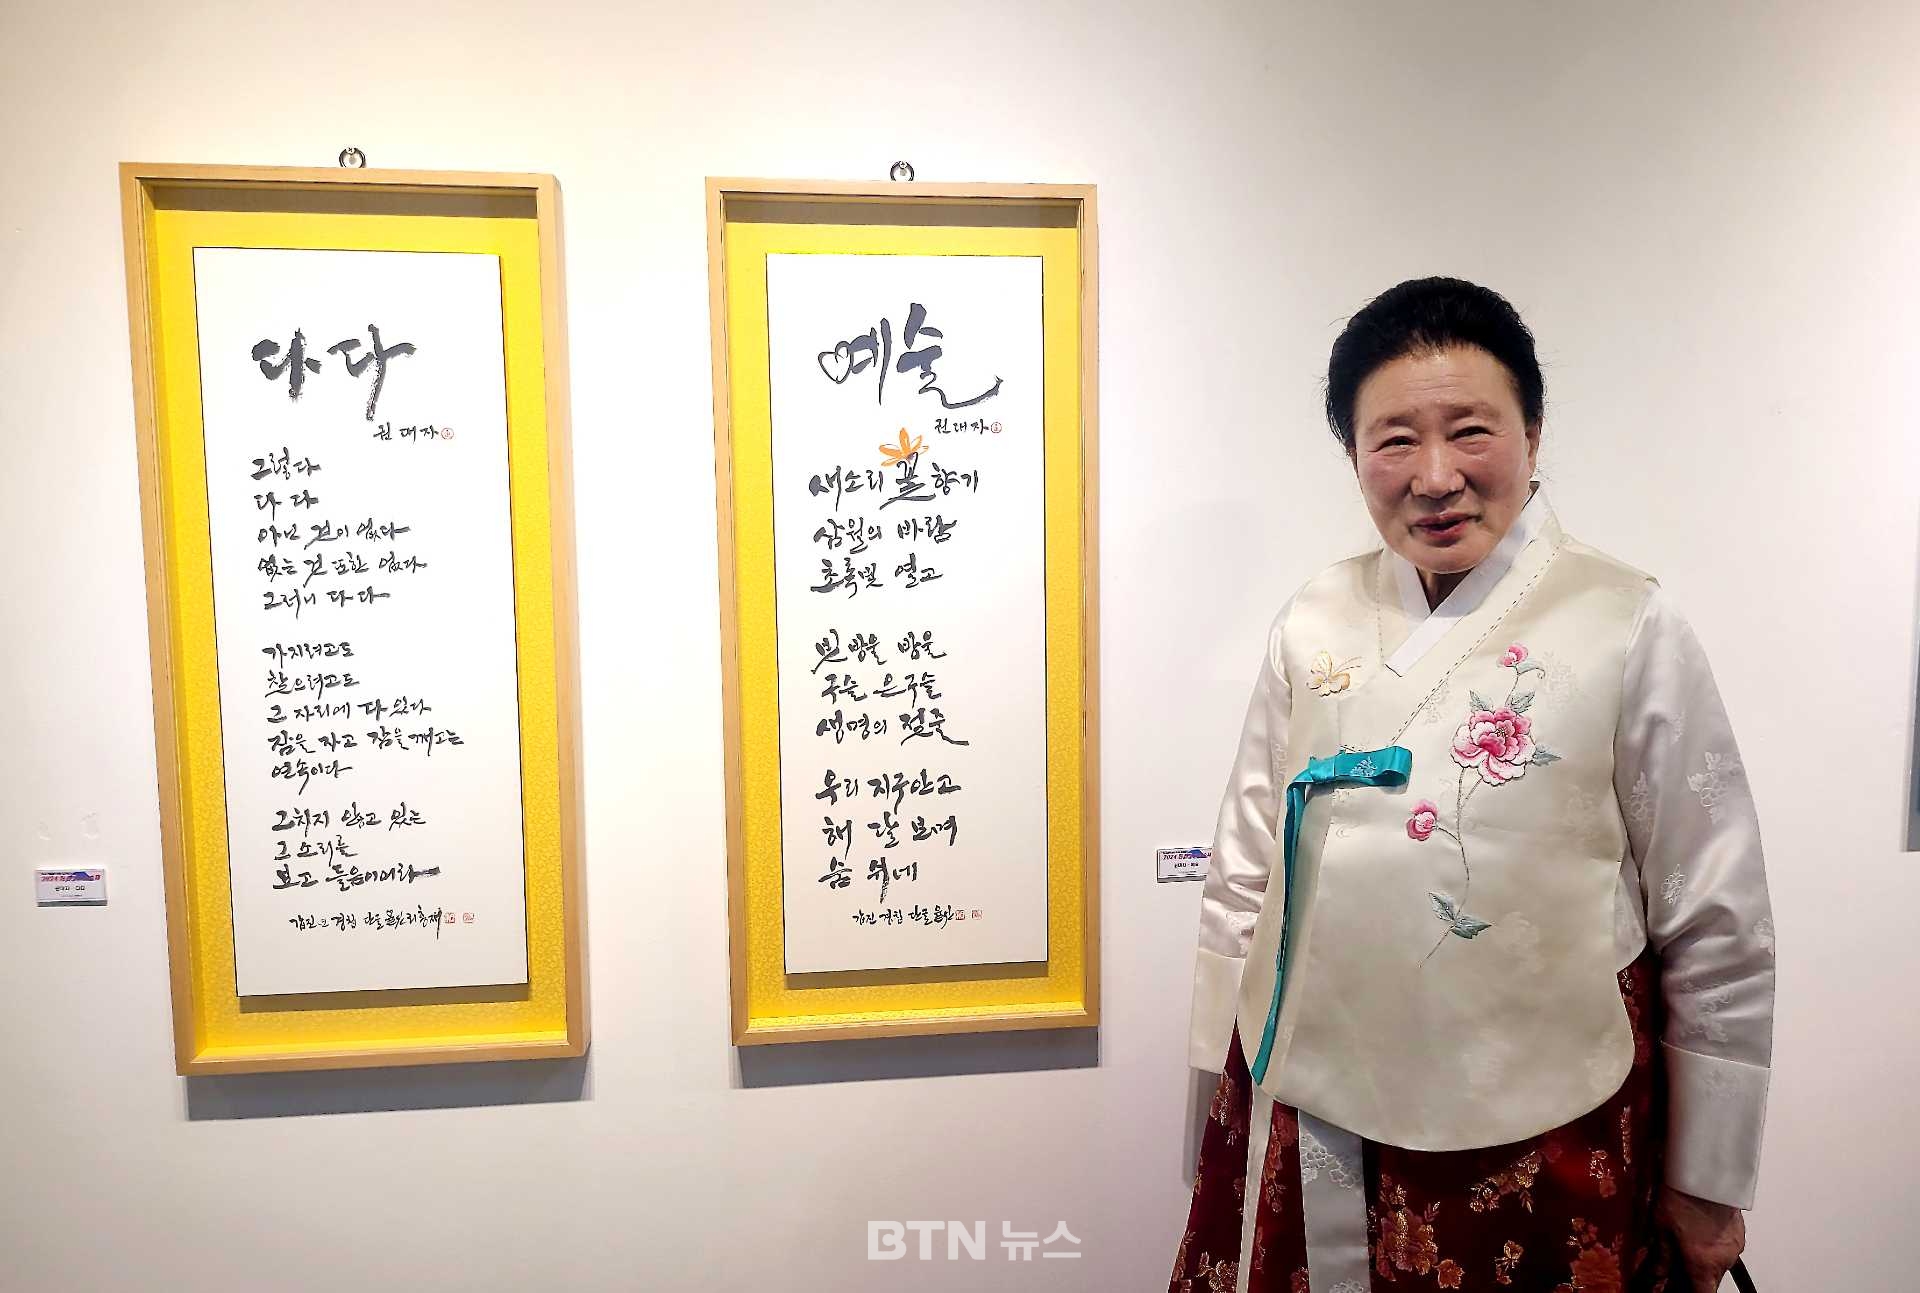 다다
권대자
그렇다
다 다
아닌 것이 없다
없는 것 또한 없다
그러니 다 다
가지려고도
찾으려고도
그 자리에 다 있다
잠을 자고 잠을 깨고는
연속이다
그치지 않고 있는
그 소리를
보고 들음이어라
갑진 경칩 단울
예술
권대자
새소리 꽃 향기
삼월의 바람
초록빛 열고
빗방울 방울
구슬 은구슬
생명의 젖줄
우리 지구안고
해 달 보며
숨 쉬네
갑진 경칩 단울
권대자 - 다다
2024
권대자 - 예술
BTN 뉴스